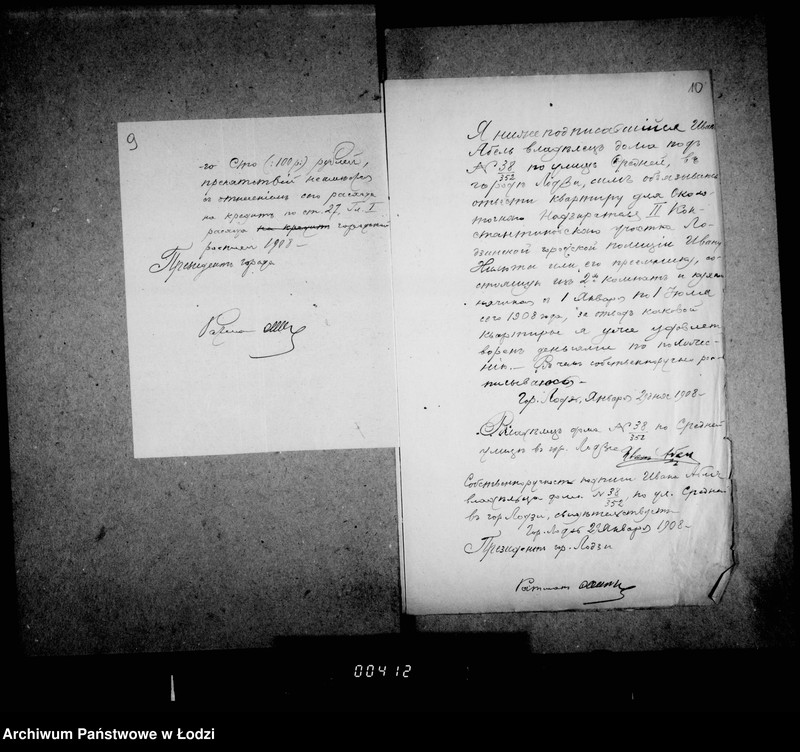 9
-го Сто (:100 р:) рублей,
препятствий не имеется
и отнесением сто расхода
на кредит по ст. 27, Гл. I
расхода на кредит городской
росписи 1908 –
Президент города
10
Я нижеподписавшийся Иван
Абель владѣлец дома под
№ 38/352 по улицѣ Средней, в
городѣ Лодзи, симъ обязываюсь
отвести квартиру для Около-
точнаго Надзирателя II Кон-
стантиновского участка Ло-
дзинской городской полиции Ивану
или его преемнику, со-
стоящую из 2хъ комнатъ и кухни
начиная с 1 Января по 1 Июля
сего 1908 года, за отвод каковой
квартиры я уже удовлет-
ворен деньгами по положе-
нию. – В чем собственноручно рас-
писываюсь –
Гор. Лодзь, Января 2 дня 1908 –
Владѣлец дома № 38/352 по Средней
улицѣ в гор. Лодзи
Иван Абель
Собственноручность подписи Ивана Абеля
владѣльца дома № 38/352 по ул. Средней
в гор. Лодзи, свидѣтельствую
Гор. Лодзь 2 Января 1908 –
Президент гор. Лодзи
00412
Archiwum Państwowe w Łodzi